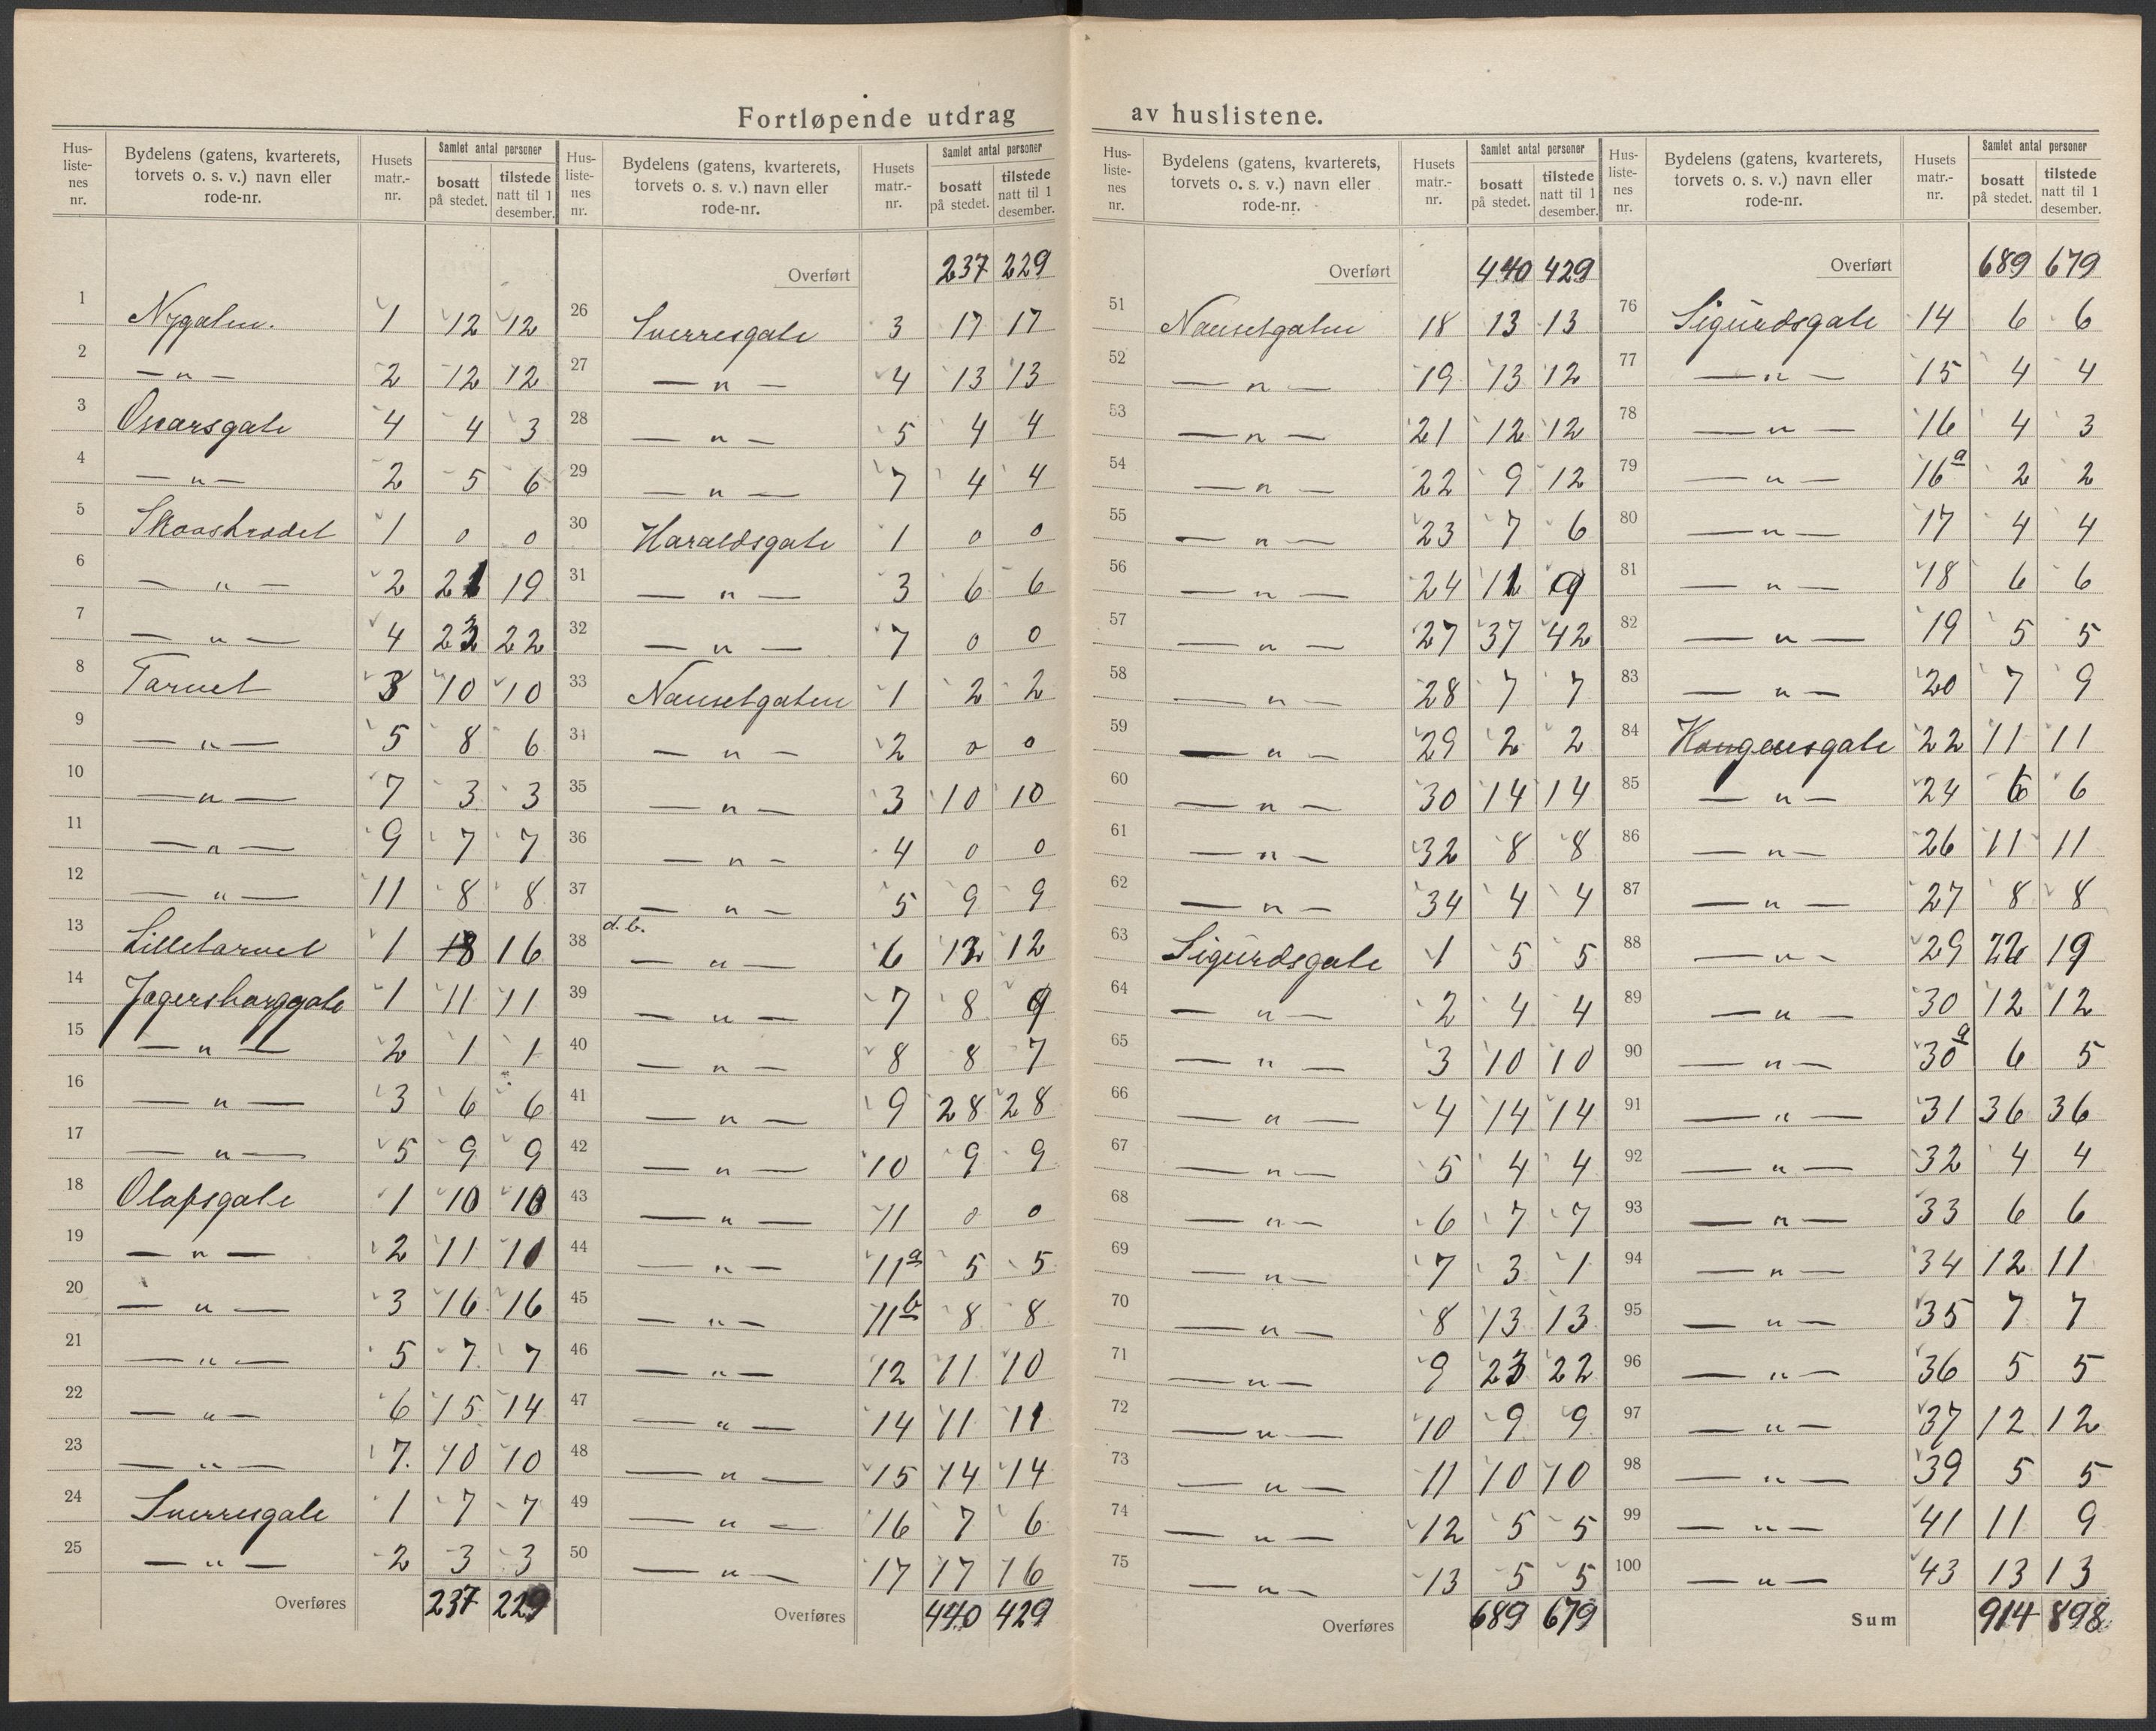 Fortløpende utdrag av huslistene.
Hus-liste-nes nr. | Bydelens (gatens, kvarterets, torvets o. s. v.) navn eller rode-nr. | Husets matr.-nr. | Samlet antal personer | bosatt på stedet. | tilstede natt til 1 desember.
1 Nygaten. 1 12 12
2 — „ — 2 12 12
3 Oscarsgate 4 4 3
4 — „ — 2 5 6
5 1 0 0
6 — „ — 2 21 19
7 — „ — 4 23 22
8 Tarvet 3 10 10
9 — „ — 5 8 6
10 — „ — 7 3 3
11 — „ — 9 7 7
12 — „ — 11 8 8
13 Lilletarvet 1 18 16
14 Jegersborggate 1 11 11
15 — „ — 2 1 1
16 — „ — 3 6 6
17 — „ — 5 9 9
18 Olafsgate 1 10 10
19 — „ — 2 11 10
20 — „ — 3 16 16
21 — „ — 5 7 7
22 — „ — 6 15 14
23 — „ — 7. 10 10
24 Sverresgate 1 7 7
25 — „ — 2 3 3
Overføres 237 229
Hus-liste-nes nr. | Bydelens (gatens, kvarterets, torvets o. s. v.) navn eller rode-nr. | Husets matr.-nr. | Samlet antal personer | bosatt på stedet. | tilstede natt til 1 desember.
Overført 237 229
26 Sverresgate 3 17 17
27 — „ — 4 13 13
28 — „ — 5 4 4
29 — „ — 7 4 4
30 Haraldsgate 1 0 0
31 — „ — 3 6 6
32 — „ — 7 0 0
33 Nansetgaten 1 2 2
34 — „ — 2 0 0
35 — „ — 3 10 10
36 — „ — 4 0 0
37 — „ — 5 9 9
38 d. b. — „ — 6 12
39 — „ — 7 8 9
40 — „ — 8 8 7
41 — „ — 9 28 28
42 — „ — 10 9 9
43 — „ — 11 0 0
44 — „ — 11a 5 5
45 — „ — 11b 8 8
46 — „ — 12 11 10
47 — „ — 14 11 11
48 — „ — 15 14 14
49 — „ — 16 7 6
50 — „ — 17 17 16
Overføres 440 429
Hus-liste-nes nr. | Bydelens (gatens, kvarterets, torvets o. s. v.) navn eller rode-nr. | Husets matr.-nr. | Samlet antal personer | bosatt på stedet. | tilstede natt til 1 desember.
Overført 440 429
51 Nansetgaten 18 13 13
52 — „ — 19 13 12
53 — „ — 21 12 12
54 — „ — 22 9 12
55 — „ — 23 7 6
56 — „ — 24 11 9
57 — „ — 27 37 42
58 — „ — 28 7 7
59 — „ — 29 2 2
60 — „ — 30 14 14
61 — „ — 32 8 8
62 — „ — 34 4 4
63 Sigurdsgate 1 5 5
64 — „ — 2 4 4
65 — „ — 3 10 10
66 — „ — 4 14 14
67 — „ — 5 4 4
68 — „ — 6 7 7
69 — „ — 7 3 1
70 — „ — 8 13 13
71 — „ — 9 23 22
72 — „ — 10 9 9
73 — „ — 11 10 10
74 — „ — 12 5 5
75 — „ — 13 5 5
Overføres 689 679
Hus-liste-nes nr. | Bydelens (gatens, kvarterets, torvets o. s. v.) navn eller rode-nr. | Husets matr.-nr. | Samlet antal personer | bosatt på stedet. | tilstede natt til 1 desember.
Overført 689 679
76 Sigurdsgate 14 6 6
77 — „ — 15 4 4
78 — „ — 16 4 3
79 — „ — 16a 2 2
80 — „ — 17 4 4
81 — „ — 18 6 6
82 — „ — 19 5 5
83 — „ — 20 7 9
84 Kongensgate 22 11 11
85 — „ — 24 6 6
86 — „ — 26 11 11
87 — „ — 27 8 8
88 — „ — 29 19
89 — „ — 30 12 12
90 — „ — 30a 6 5
91 — „ — 31 36 36
92 — „ — 32 4 4
93 — „ — 33 6 6
94 — „ — 34 12 11
95 — „ — 35 7 7
96 — „ — 36 5 5
97 — „ — 37 12 12
98 — „ — 39 5 5
99 — „ — 41 11 9
100 — „ — 43 13 13
Sum 914 898